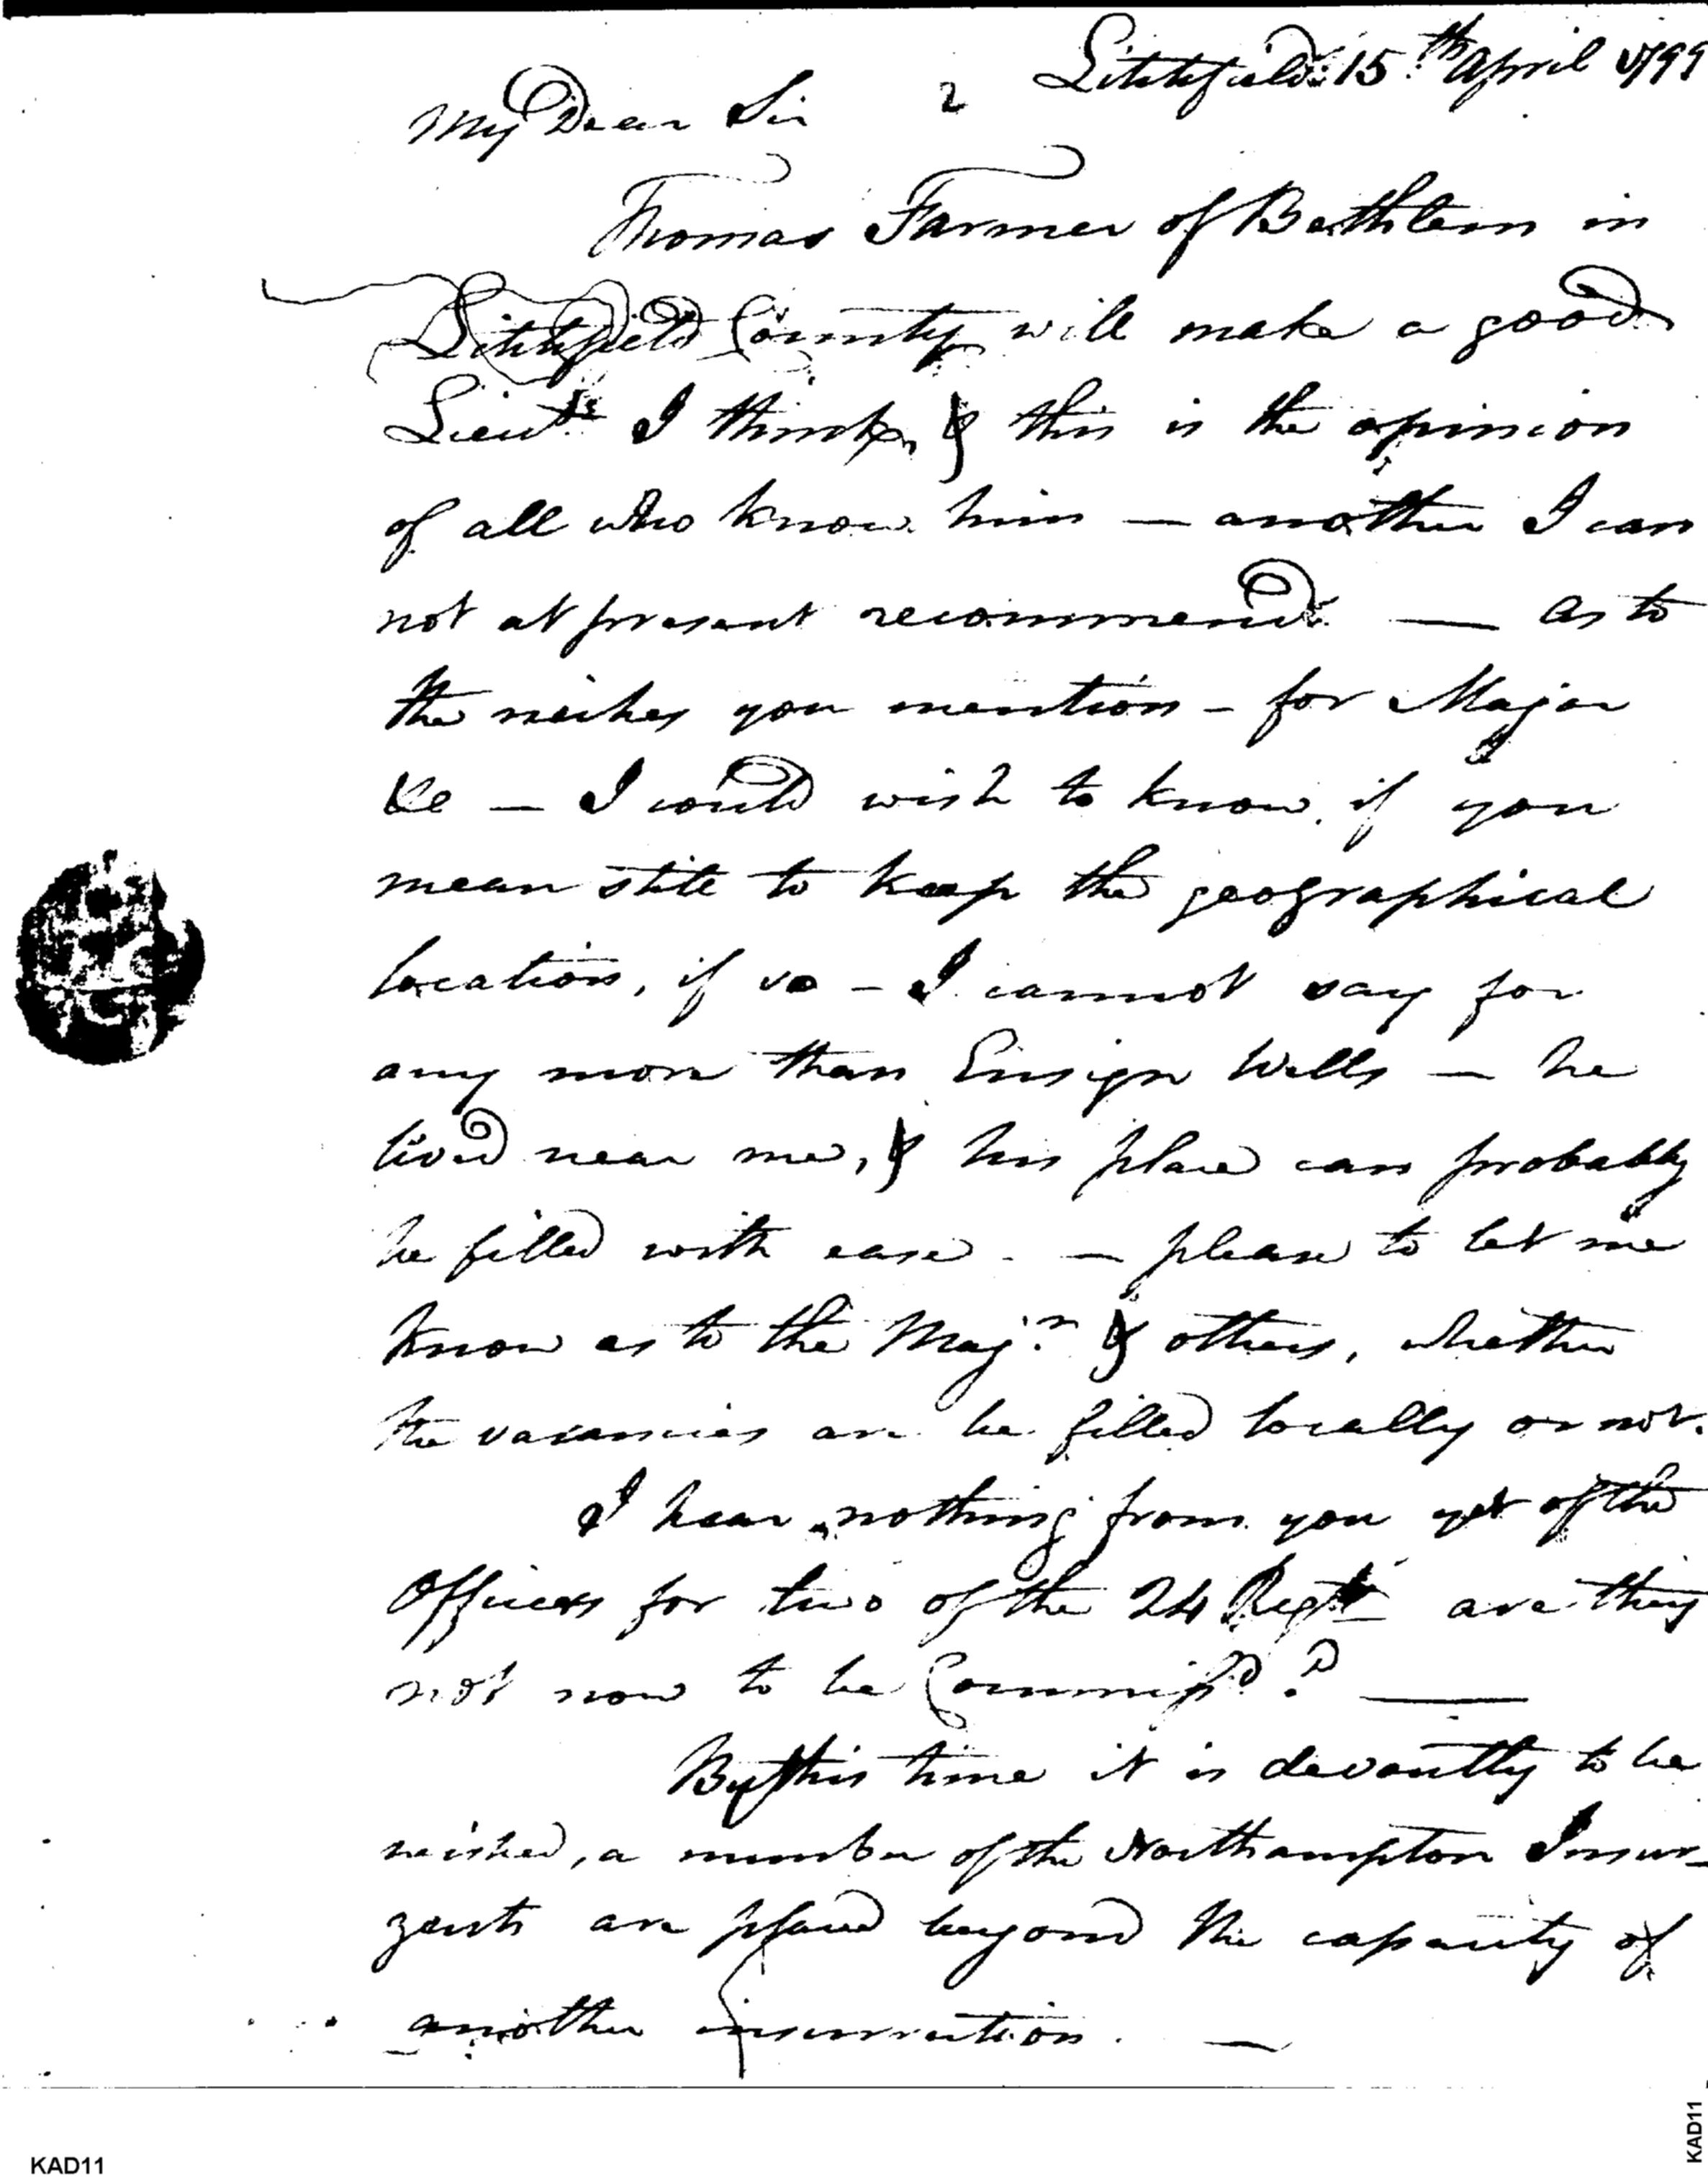 Litchfield 15th April 1799
My Dear Sir 2
Thomas Farmer of Bethlem in
Litchfield County will make a good
Lieut. I think, & this is the opinion
of all who know him — another I can
not at present recommend — as to
the niches you mention – for Major
&c — I would wish to know if you
mean still to keep the geographical
location, if so – I cannot say for
any more than Ensign Wells — he
lived near me, & his place can probably
be filled with ease. — please to let me
know as to the Majr. & others, whether
the vacancies are be filled locally or not.
I hear nothing from you yet of the
Officers for two of the 24 Regts are they
not now to be Commissd.? —
By this time it is devoutly to be
wished, a number of the Northampton Insur-
gents are placed beyond the capacity of
another insurrection. —
KAD11
KAD11